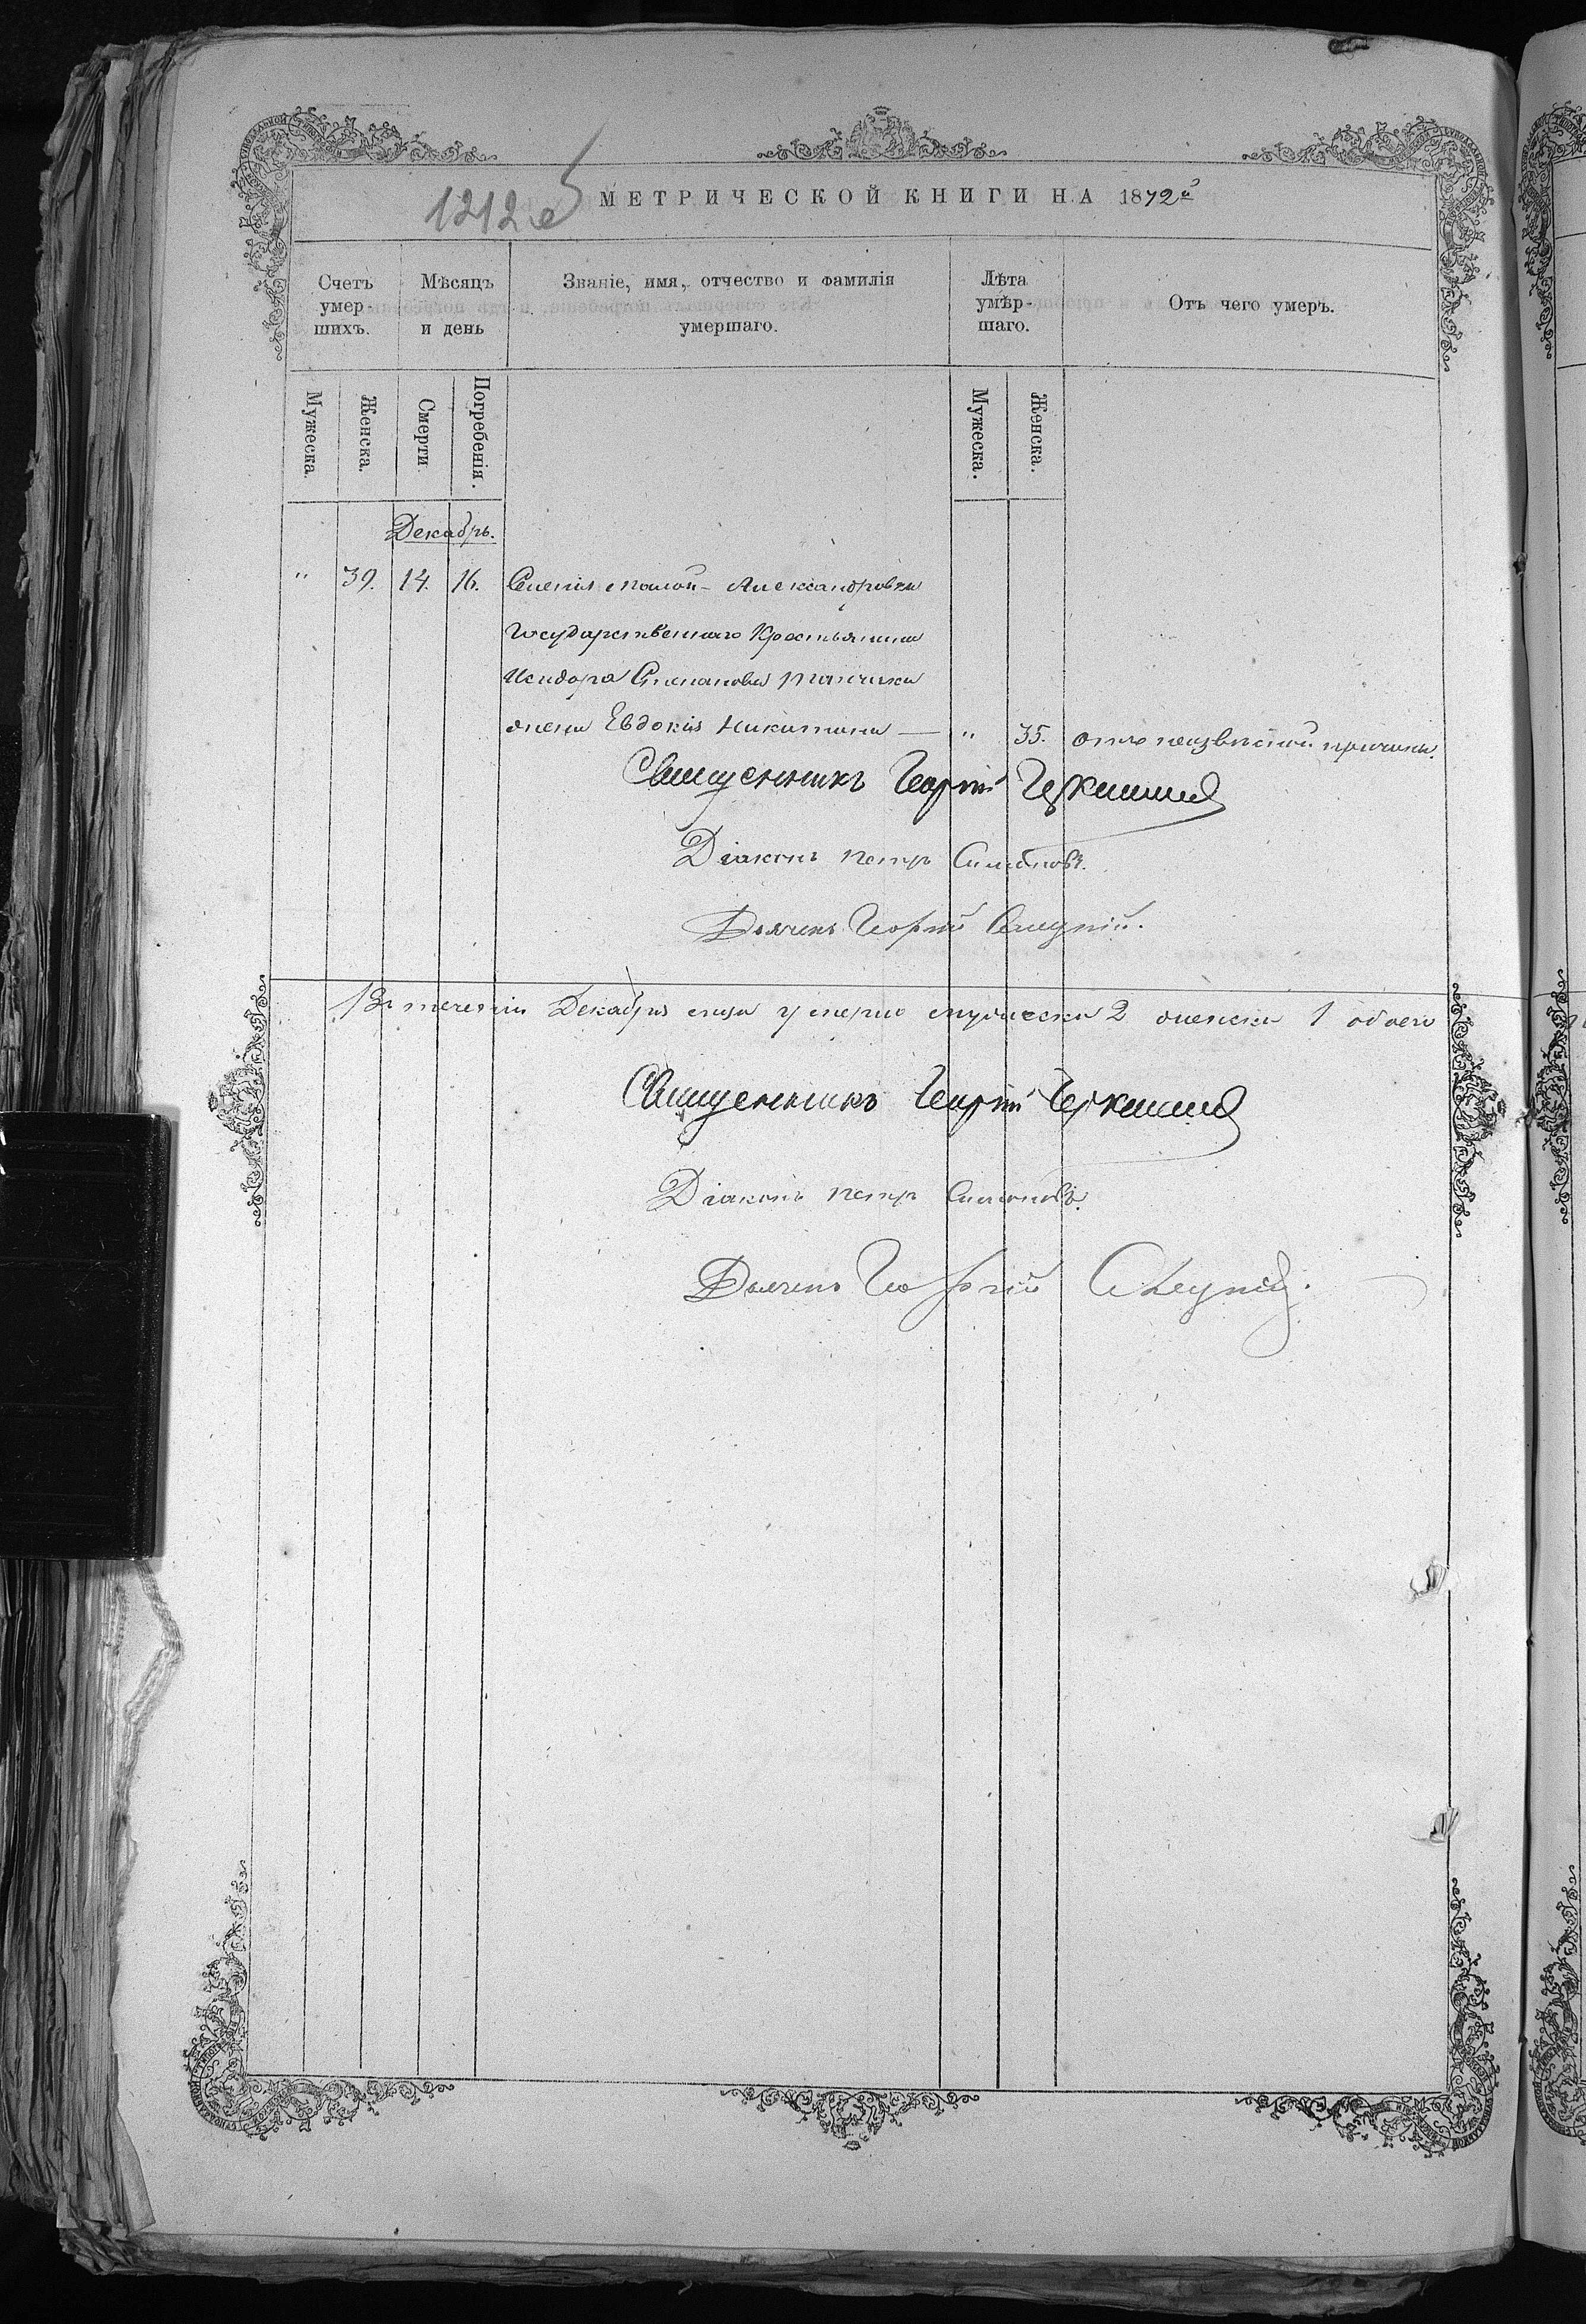 1212 об
МЕТРИЧЕСКОЙ КНИГИ НА 1872й
Счетъ умер шихъ.
Мѣсяцъ и день
Званіе, имя, отчество и фамилія умершаго.
Лѣта умѣр- шаго.
Отъ чего умеръ.
Мужеска.
Женска.
Смерти.
Погребенія.
Мужеска.
Женска.
Декабрь.
" 39. 14. 16. Александровки
Государственнаго Крестьянина
Исидора Степанова
жена Евдокія Никитина — " 35. отъ неизвѣстной причины.
Священникъ Георгій
Діаконъ Петръ Симоновъ.
Дьячекъ Георгій
Въ теченіи Декабря умерло мужеска 2 женска 1 обоего
Священникъ Георгій
Діаконъ Петръ Симоновъ.
Дьячекъ Георгій